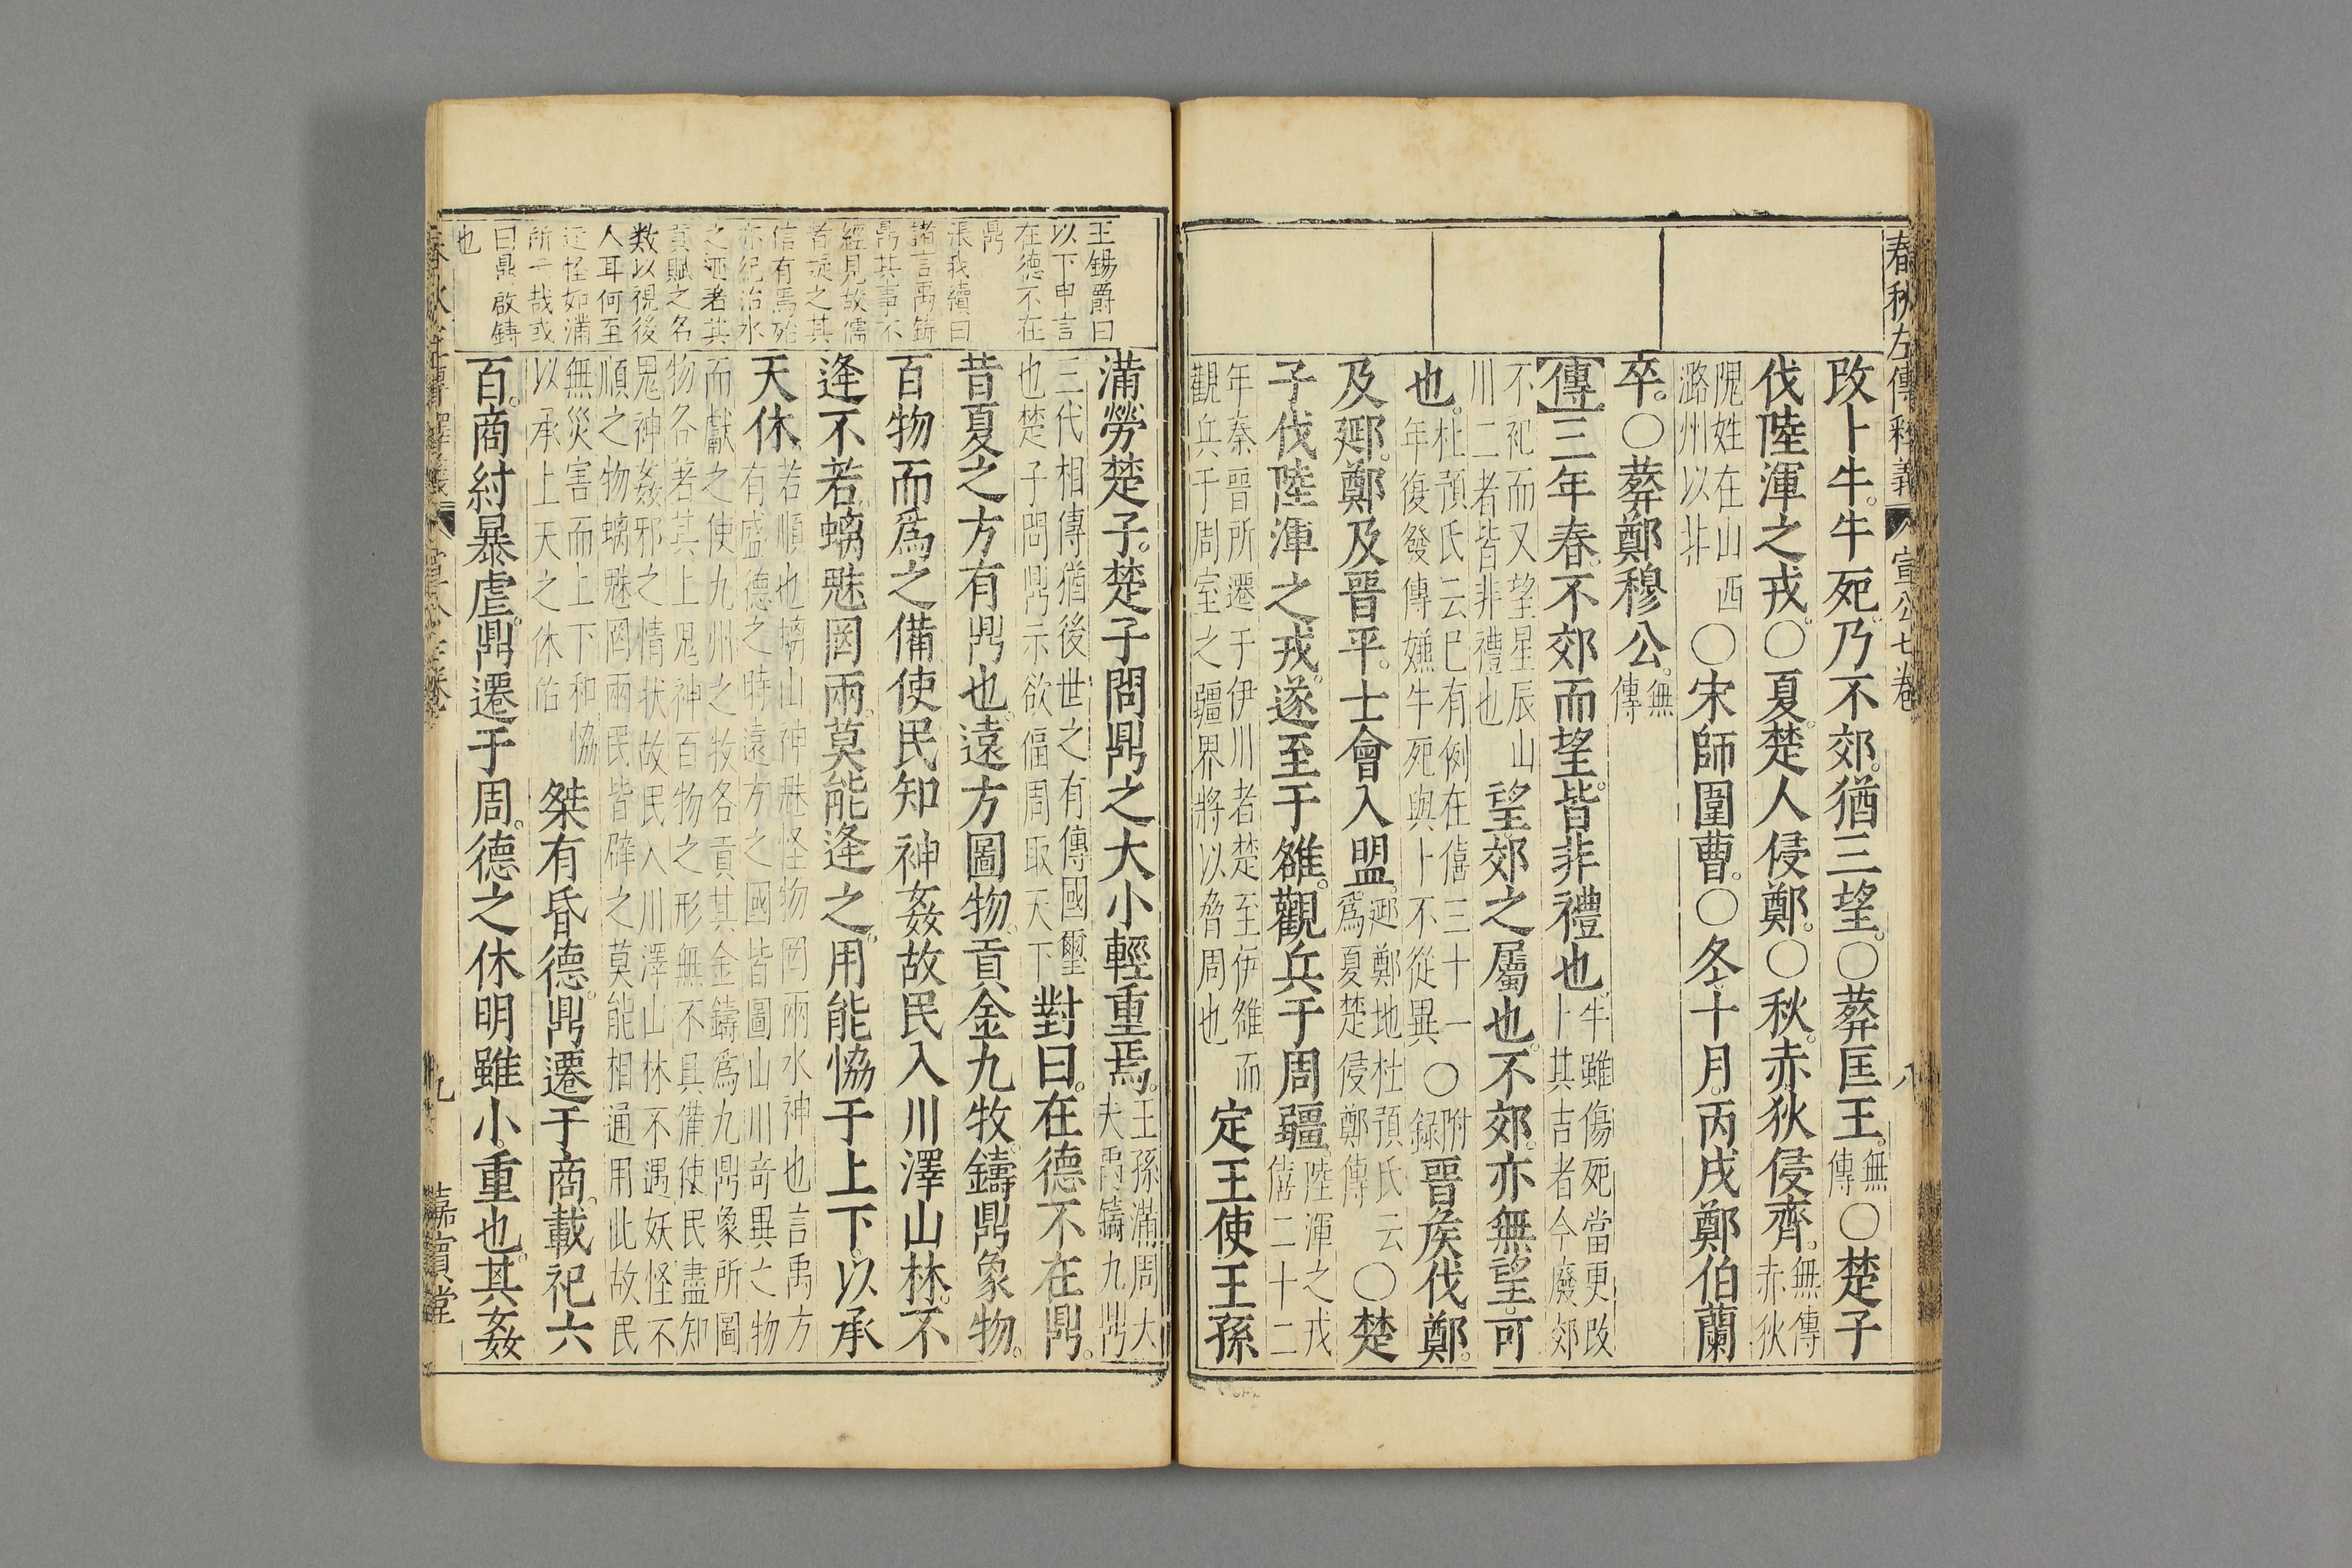 春秋左傳釋義 宣公七卷 八
改卜牛。牛死。乃不郊。猶三望。○葬匡王。無傳○楚子
伐陸渾之戎。○夏。楚人侵鄭。○秋。赤狄侵齊。無傳赤狄
隗姓在山西潞州以非○宋師圍曹。○冬。十月。丙戌鄭伯蘭
卒。○葬鄭穆公。無傳
傳三年春。不郊而望。皆非禮也。牛雖傷死當更改卜其吉者今廢郊
不祀而又望星辰山川二者皆非禮也望。郊之屬也。不郊。亦無望。可
也。杜預氏云已有例在僖三十一年復發傳嫌牛死與卜不從異○附録晉侯伐鄭。
及郔。鄭及晉平。士會入盟。郔鄭地杜預氏云爲夏楚侵鄭傳○楚
子伐陸渾之戎。遂至于雒。觀兵于周疆。陸渾之戎僖二十二
年秦晉所遷于伊川者楚至伊雒而觀兵于周室之疆界將以脅周也定王使王孫
滿勞楚子。楚子問鼎之大小輕重焉。王孫滿周大夫禹鑄九鼎
三代相傳猶後世之有傳國璽也楚子問鼎示欲偪周取天下對曰。在德不在鼎。
昔夏之方有鼎也。遠方圖物。貢金九牧。鑄鼎象物。
百物而爲之備使民知神姦故民入川澤山林。不
逢不若。螭魅罔兩。莫能逢之。用能恊于上下。以承
天休。若順也螭山神魅怪物罔兩水神也言禹方有盛德之時遠方之國皆圖山川奇異之物
而獻之使九州之牧各貢其金鑄爲九鼎象所圖物各著其上鬼神百物之形無不具備使民盡知
鬼神姦邪之情狀故民入川澤山林不遇妖怪不順之物螭魅罔兩民皆辟之莫能相通用此故民
無災害而上下和恊以承上天之休佑桀有昏德。鼎遷于商。載祀六
百。商紂暴虐。鼎遷于周。德之休明雖小。重也。其姦
王錫爵曰
以下申言
在德不在
鼎
張我續曰
諸言禹鑄
鼎其事不
經見故儒
者疑之其
信有焉殆
亦紀治水
之迹者其
貢賦之名
数以視後
人耳何至
迂怪如滿
所云哉或
曰鼎啟鑄
也
九 嘉賓堂